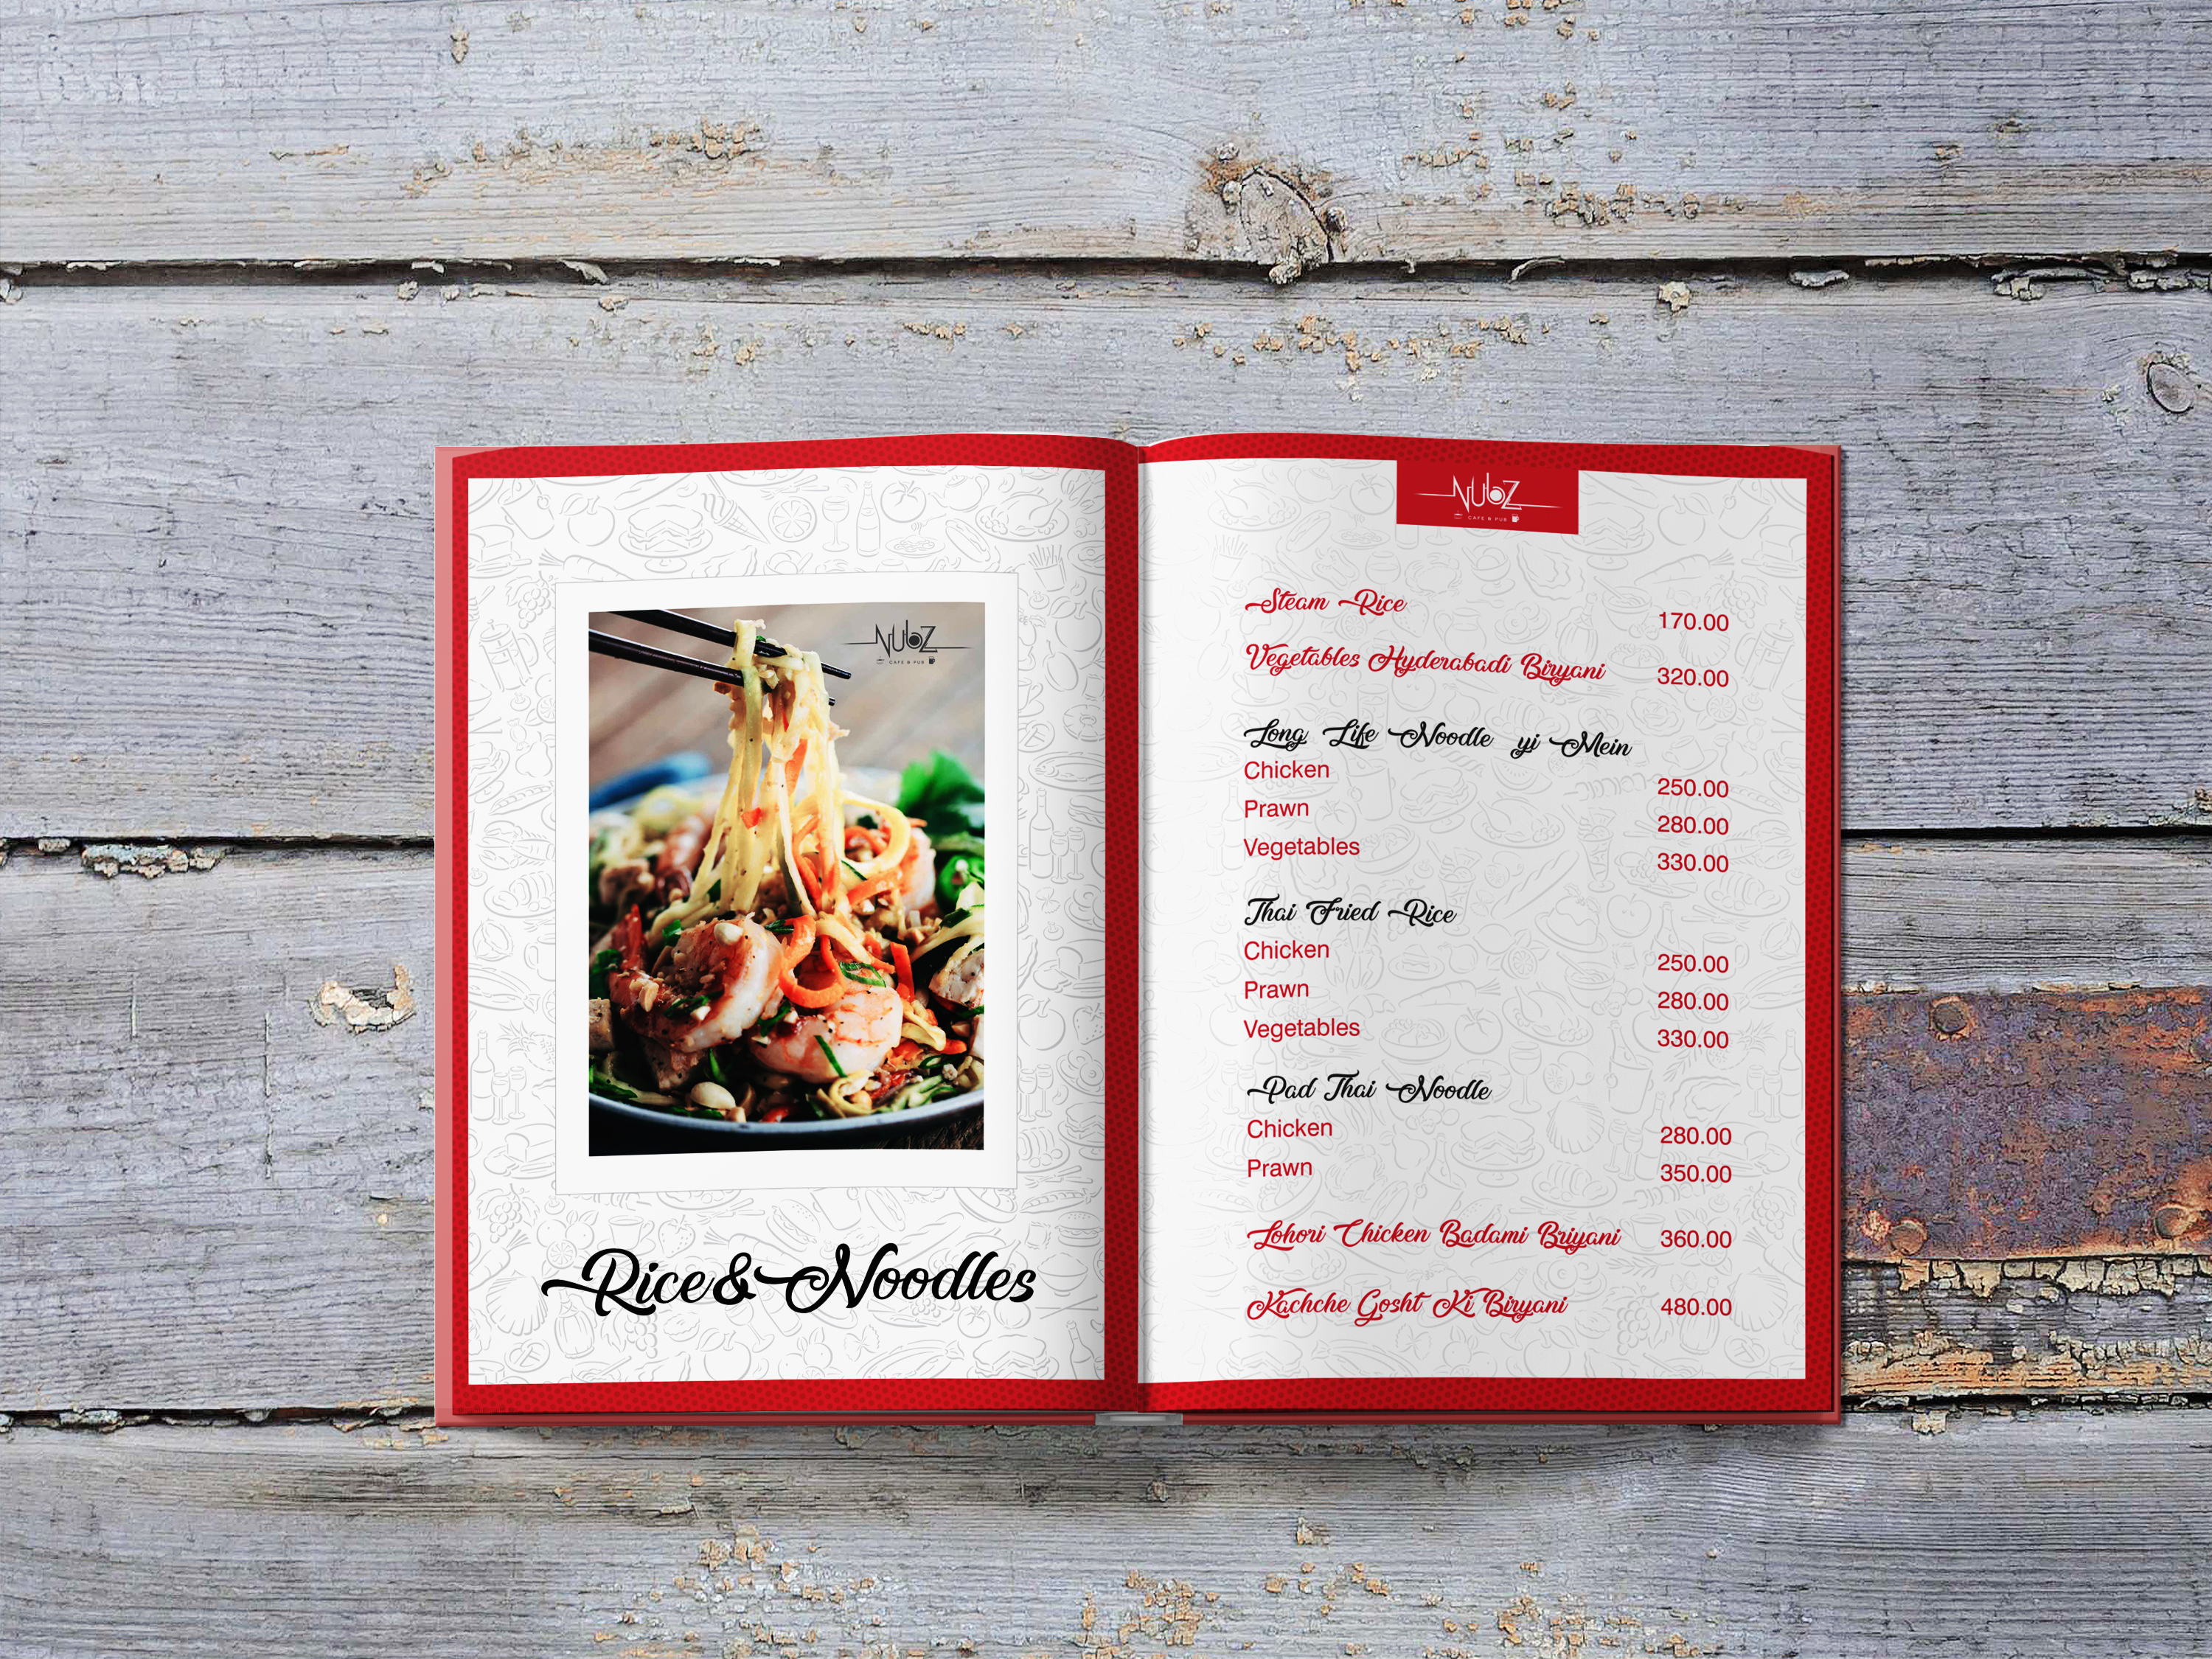 NUbZ
CAFE & PUB
Rice & Noodles
NUbZ
CAFE & PUB
Steam Rice 170.00
Vegetables Hyderabadi Biryani 320.00
Long Life Noodle yi Mein
Chicken 250.00
Prawn 280.00
Vegetables 330.00
Thai Fried Rice
Chicken 250.00
Prawn 280.00
Vegetables 330.00
Pad Thai Noodle
Chicken 280.00
Prawn 350.00
Lohori Chicken Badami Briyani 360.00
Kachche Gosht Ki Biryani 480.00